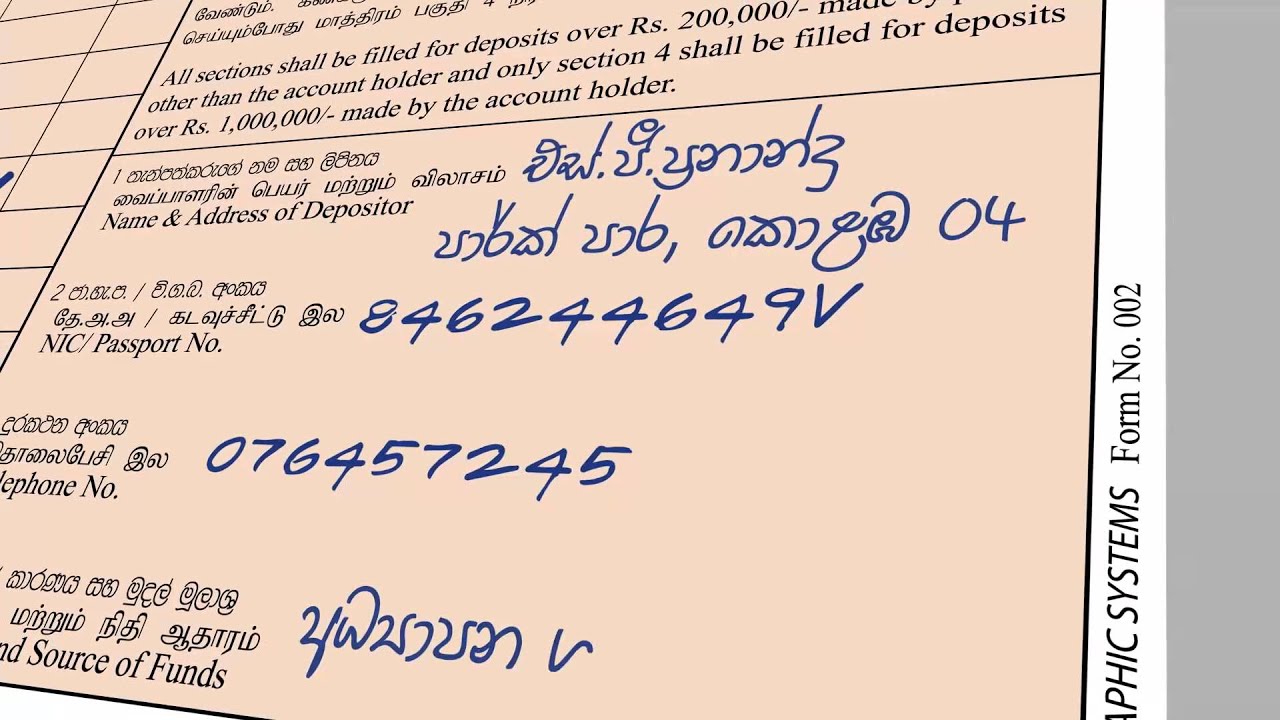 வேண்டும்.
செய்யும்போது மாத்திரம் பகுதி 4
All sections shall be filled for deposits over Rs. 200,000/- made by
other than the account holder and only section 4 shall be filled for deposits
over Rs. 1,000,000/- made by the account holder.
1 තැන්පත්කරුගේ නම සහ ලිපිනය
வைப்பாளரின் பெயர் மற்றும் விலாசம்
Name & Address of Depositor
එස්.පී.ප්‍රනාන්දු
පාර්ක් පාර, කොළඹ 04
2 ජා.හැ.ප. / වි.ග.බ. අංකය
தே.அ.அ / கடவுச்சீட்டு இல
NIC/ Passport No.
846244649V
දුරකථන අංකය
தொலைபேசி இல
lephone No.
076457245
කාරණය සහ මුදල් මූලාශ්‍ර
மற்றும் நிதி ஆதாரம்
nd Source of Funds
අධ්‍යාපන
APHIC SYSTEMS Form No. 002